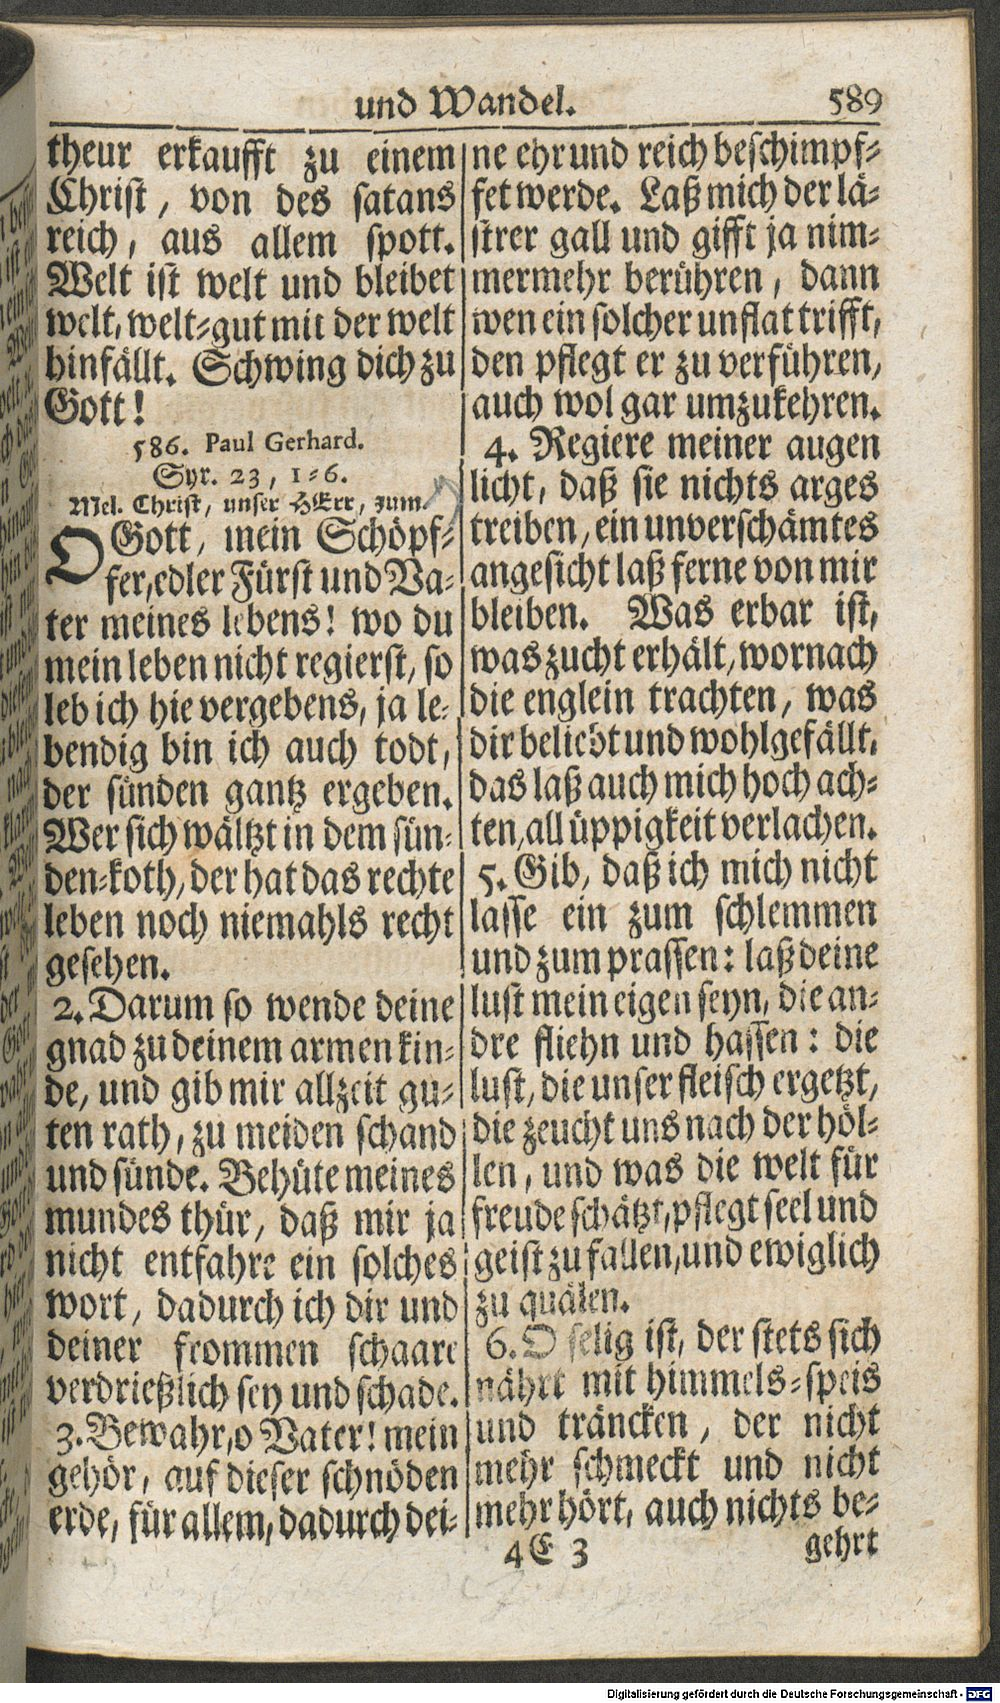 und Wandel. 589
theur erkaufft zu einem
Christ, von des satans
reich, aus allem spott.
Welt ist welt und bleibet
welt, welt-gut mit der welt
hinfällt. Schwing dich zu
Gott!
586. Paul Gerhard.
Syr. 23, 1-6.
Mel. Christ, unser HErr, zum.
O Gott, mein Schöpf-
fer, edler Fürst und Va-
ter meines lebens! wo du
mein leben nicht regierst, so
leb ich hie vergebens, ja le-
bendig bin ich auch todt,
der sünden gantz ergeben.
Wer sich wältzt in dem sün-
den-koth, der hat das rechte
leben noch niemahls recht
gesehen.
2. Darum so wende deine
gnad zu deinem armen kin-
de, und gib mir allzeit gu-
ten rath, zu meiden schand
und sünde. Behüte meines
mundes thür, daß mir ja
nicht entfahre ein solches
wort, dadurch ich dir und
deiner frommen schaare
verdrießlich sey und schade.
3. Bewahr, o Vater! mein
gehör, auf dieser schnöden
erde, für allem, dadurch dei-
ne ehr und reich beschimpf-
fet werde. Laß mich der lä-
strer gall und gifft ja nim-
mermehr berühren, dann
wen ein solcher unflat trifft,
den pflegt er zu verführen,
auch wol gar umzukehren.
4. Regiere meiner augen
licht, daß sie nichts arges
treiben, ein unverschämtes
angesicht laß ferne von mir
bleiben. Was erbar ist,
was zucht erhält, wornach
die englein trachten, was
dir beliebt und wohlgefällt,
das laß auch mich hoch ach-
ten, all üppigkeit verlachen.
5. Gib, daß ich mich nicht
lasse ein zum schlemmen
und zum prassen: laß deine
lust mein eigen seyn, die an-
dre fliehn und hassen: die
lust, die unser fleisch ergetzt,
die zeucht uns nach der höl-
len, und was die welt für
freude schätzt, pflegt seel und
geist zu fällen, und ewiglich
zu quälen.
6. O selig ist, der stets sich
nährt mit himmels-speis
und träncken, der nicht
mehr schmeckt und nicht
mehr hört, auch nichts be-
4E 3 gehrt
Digitalisierung gefördert durch die Deutsche Forschungsgemeinschaft - DFG